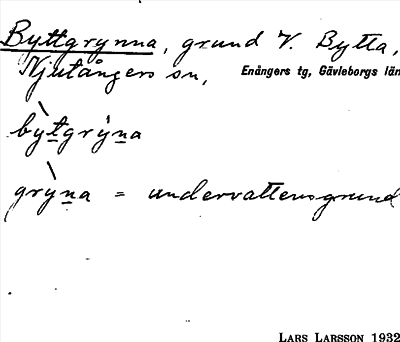 Byttgrynna, grund V. Bytta,
Njutångers sn, Enångers tg, Gävleborgs län
bỳt̲grýn̲a
grỳn̲a = undervattensgrund
LARS LARSSON 1932